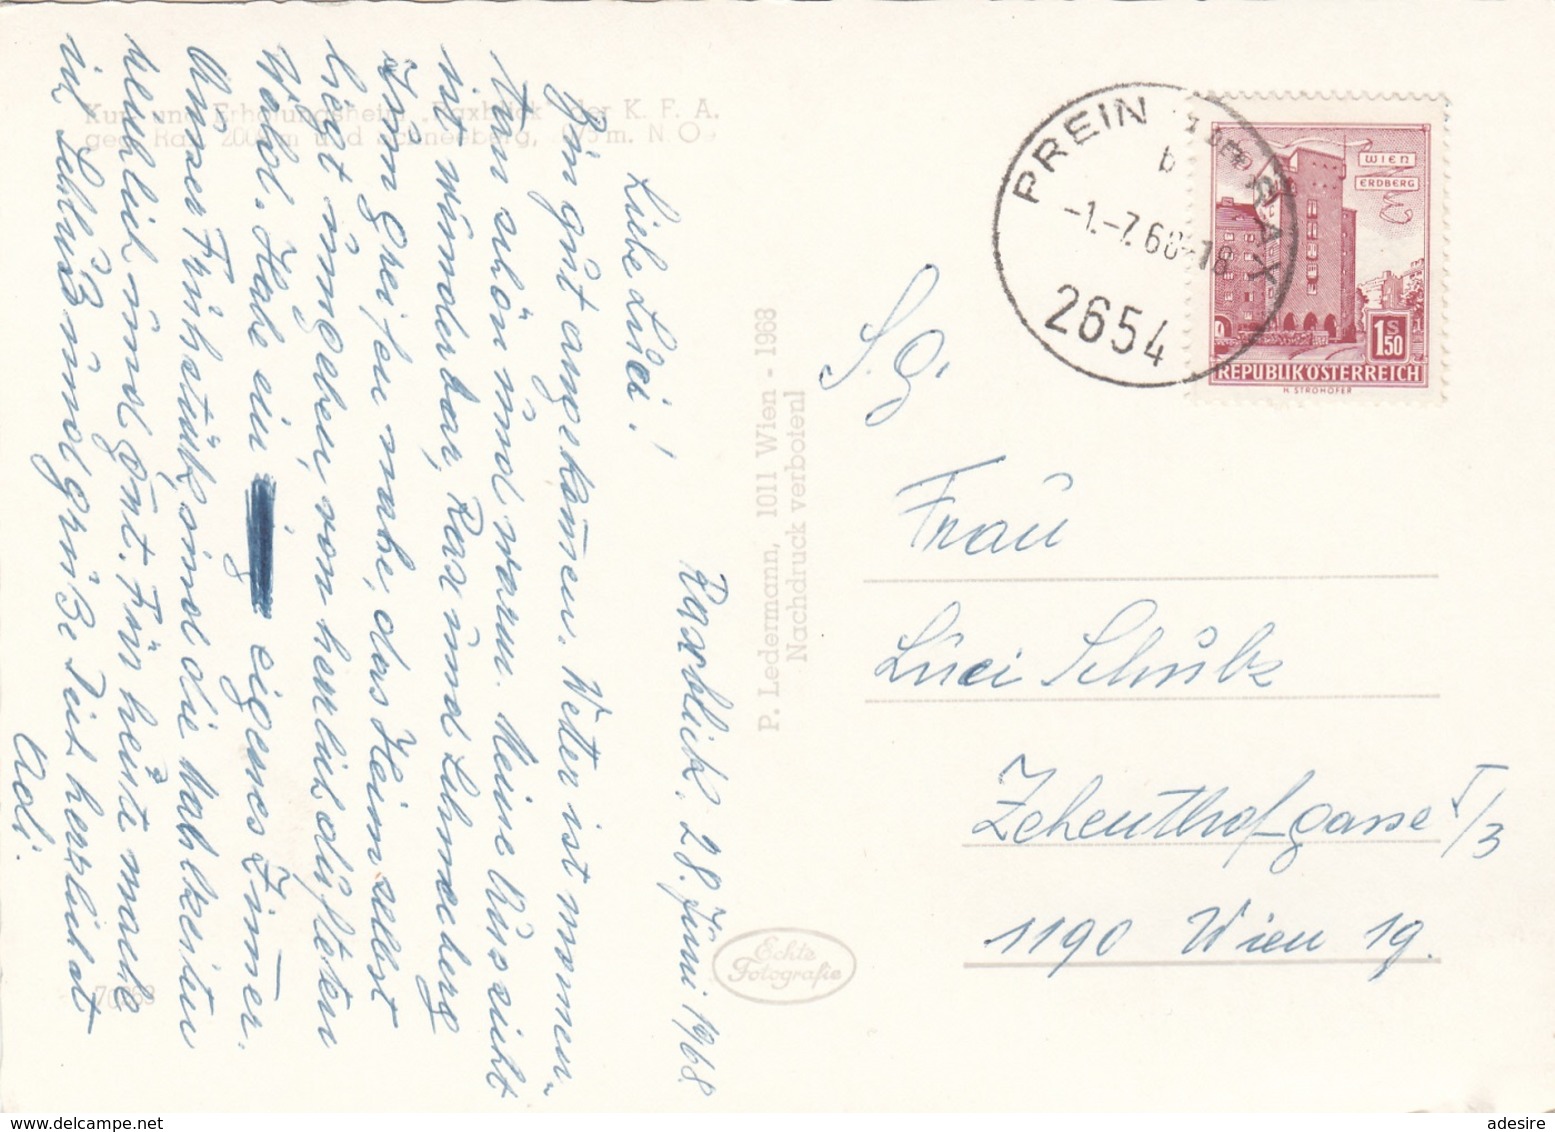 Kur- und Erholungsheim „Raxblick" der K. F. A.
geg. Rax 2009 m und Schneeberg, 2075 m. N. Ö.
Raxblick, 28. Juni 1968
Liebe Luci!
Bin gut angekommen. Wetter ist momen-
tan schön und warm. Meine Aussicht
ist wunderbar, Rax und Schneeberg
zum greifen nahe, das Heim selbst
liegt umgeben, von herrlich duftetem
Wald. Habe ein eigenes Zimmer.
Unser Frühstück, sind die Mahlzeiten
reichlich und gut. Für heute mache
ich Schluß und grüße Dich herzlichst
Adi.
P. Ledermann, 1011 Wien - 1968
Nachdruck verboten]
Echte
Fotografie
70 68
PREIN an der RAX
b
-1.-7.68-18
2654
WIEN
ERDBERG
1 S 50
REPUBLIK ÖSTERREICH
H. STROHOFER
S. g.
Frau
Luci Schulz
Zehenthofgasse I/3
1190 Wien 19.
www.delcampe.net
adesire